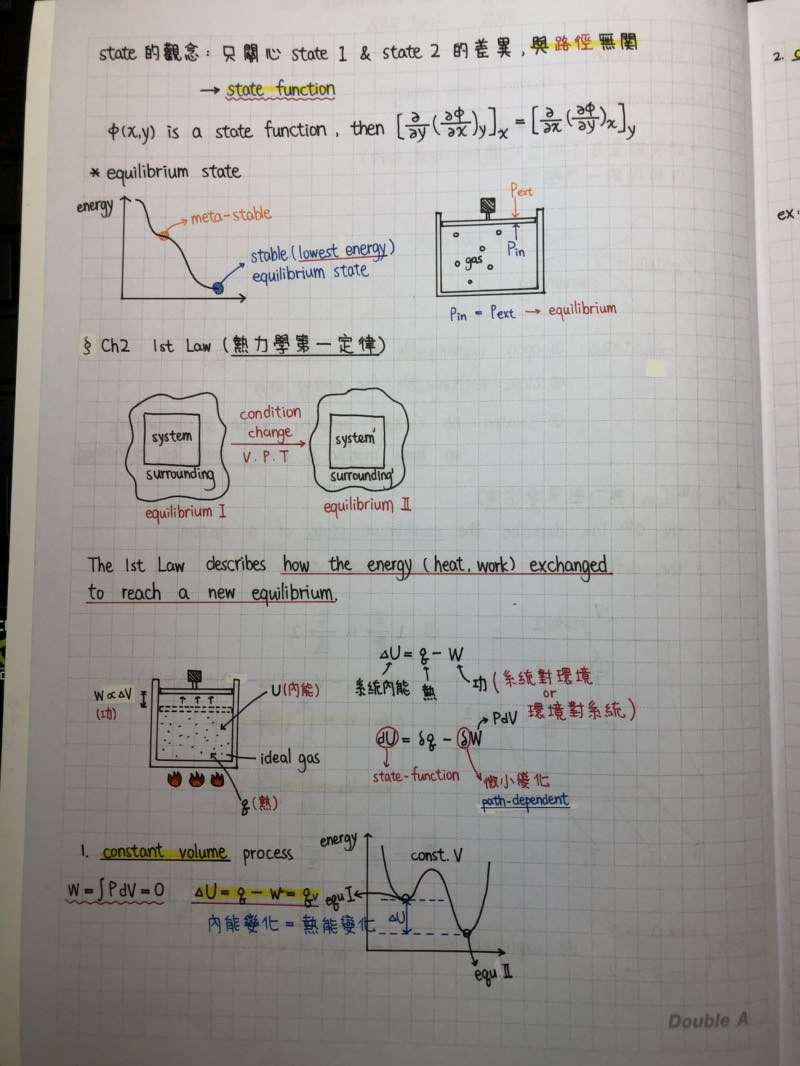 state 的觀念：只關心 state 1 & state 2 的差異，與路徑無関
→ state function
φ(x,y) is a state function, then [∂/∂y(∂φ/∂x)y]x = [∂/∂x(∂φ/∂y)x]y
* equilibrium state
energy
meta-stable
stable (lowest energy)
equilibrium state
Pext
Pin
gas
Pin = Pext → equilibrium
§ Ch2 1st Law (熱力學第一定律)
system
surrounding
equilibrium I
condition
change
V.P.T
system'
surrounding'
equilibrium II
The 1st Law describes how the energy (heat, work) exchanged
to reach a new equilibrium.
W∝ΔV
(功)
U(內能)
ideal gas
q(熱)
ΔU = q - W
系統內能 熱 功 (系統對環境
or
環境對系統)
PdV
dU = δq - δW
state-function
微小變化
path-dependent
1. constant volume process
W = ∫PdV = 0 ΔU = q - W = qv
內能變化 = 熱能變化
energy
const. V
equ I
ΔU
equ. II
Double A
2.
ex: